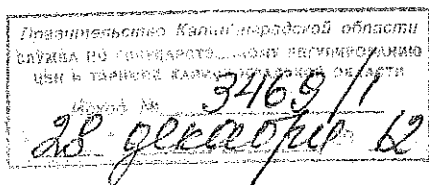 Правительство Калининградской области
СЛУЖБА ПО ГОСУДАРСТВЕННОМУ РЕГУЛИРОВАНИЮ
ЦЕН И ТАРИФОВ КАЛИНИНГРАДСКОЙ ОБЛАСТИ
№ 3469/1
28 декабря 12